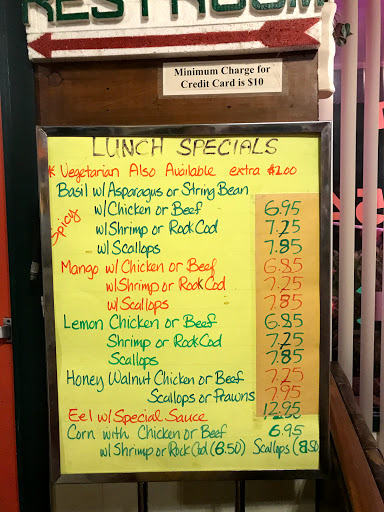 RESTROOM
Minimum Charge for
Credit Card is $10
LUNCH SPECIALS
* Vegetarian Also Available extra $2.00
Basil w/Asparagus or String Bean
Spicy
w/Chicken or Beef 6.95
w/Shrimp or Rock Cod 7.25
w/Scallops 7.85
Mango w/ Chicken or Beef 6.85
w/Shrimp or Rock Cod 7.25
w/Scallops 7.85
Lemon Chicken or Beef 6.85
Shrimp or Rock Cod 7.25
Scallops 7.85
Honey Walnut Chicken or Beef 7.25
Scallops or Prawns 7.95
Eel w/ Special Sauce 12.95
Corn with Chicken or Beef 6.95
w/ Shrimp or Rock Cod (6.50) Scallops (8.50)